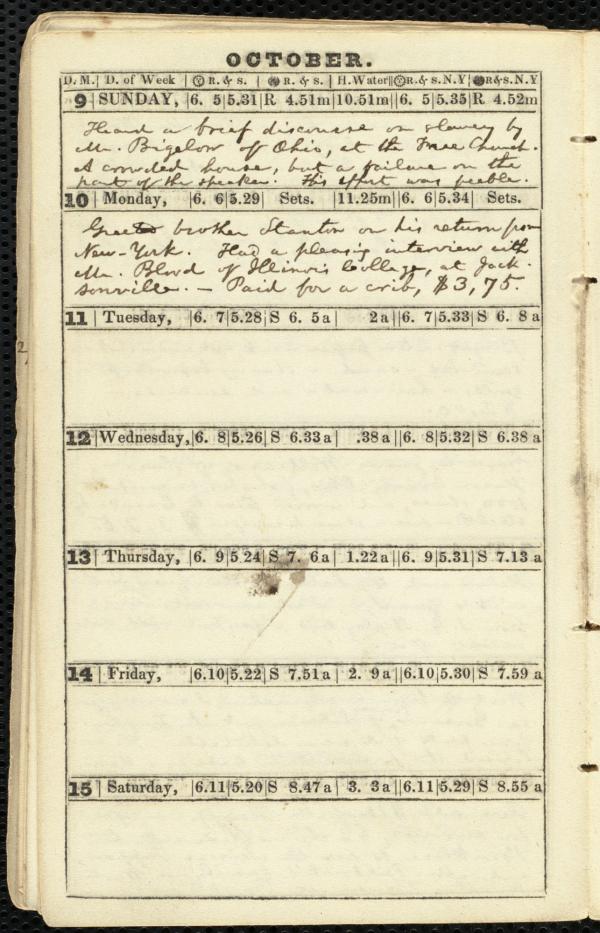 OCTOBER.
D. M. | D. of Week | R. & s. | R. & s. | H. Water || R. & s. N.Y | R & s. N.Y
9 | SUNDAY, | 6. 5 | 5.31 | R 4.51m | 10.51m || 6. 5 | 5.35 | R 4.52m
Heard a brief discourse on slavery by
Mr. Bigelow of Ohio, at the Free Church.
A crowded house, but a failure on the
part of the speaker. His effort was feeble.
10 | Monday, | 6. 6 | 5.29 | Sets. | 11.25m || 6. 6 | 5.34 | Sets.
Greeted brother Stanton on his return from
New-York. Had a pleasing interview with
Mr. Blood of Illinois College, at Jack-
sonville. — Paid for a crib, $3,75.
11 | Tuesday, | 6. 7 | 5.28 | S 6. 5a | 2a || 6. 7 | 5.33 | S 6. 8a
12 | Wednesday, | 6. 8 | 5.26 | S 6.33a | .38a || 6. 8 | 5.32 | S 6.38a
13 | Thursday, | 6. 9 | 5.24 | S 7. 6a | 1.22a || 6. 9 | 5.31 | S 7.13a
14 | Friday, | 6.10 | 5.22 | S 7.51a | 2. 9a || 6.10 | 5.30 | S 7.59a
15 | Saturday, | 6.11 | 5.20 | S 8.47a | 3. 3a || 6.11 | 5.29 | S 8.55a